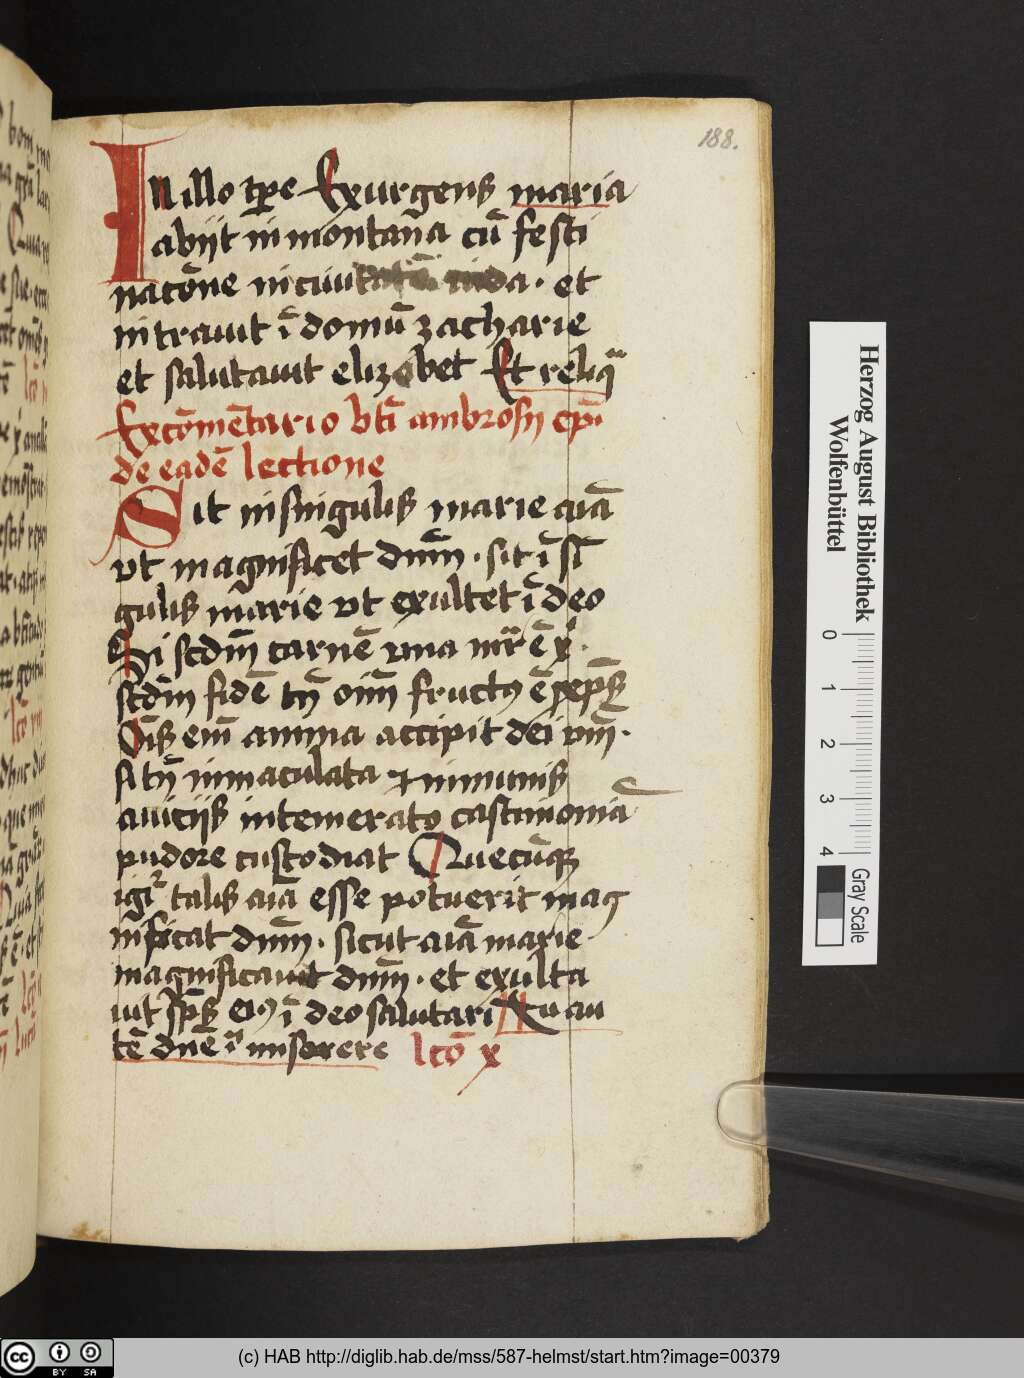 188.
In illo tp̄e Exurgens maria
abijt in montan̄a cū festi
nacōne in ciuitatē iuda · et
intrauit ī domū zacharie
et salutauit elizabet Et reliqᷓ
Ex cōmētario bt̄i ambrosij ep̄i
de eadē lectione
Sit in singulis marie aīa
vt magnificet dn̄m · sit ī sī
gulis marie vt exultet ī deo
Si scdm̄ carnē vna mr̄ ē xͥ ·
scdm̄ fidē tn̄ oīm fructꝯ ē xp̄s
Oīs em̄ anima accipit dei vm̄ ·
si tn̄ inmaculata ⁊ inmunis
a viciis intemerato castimoniā
pudore custodiat Quecūqꝫ
igiᷣ talis aīa esse potuerit mag
nificat dn̄m · sicut aīa marie
magnificauit dn̄m · et exulta
uit sp̄s eiꝯ ī deo salutari Tu au
tē dn̄e ī miserere lcō x
Herzog August Bibliothek
Wolfenbüttel
0 1 2 3 4
Gray Scale
cc BY SA
(c) HAB http://diglib.hab.de/mss/587-helmst/start.htm?image=00379